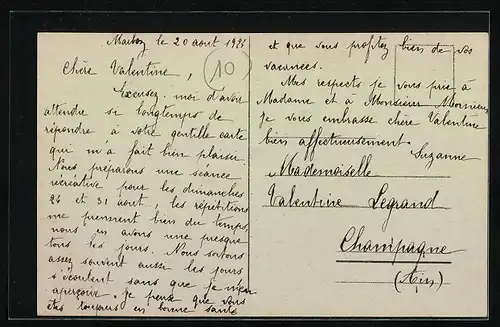 Marboz le 20 aout 19
10
Chère Valentine,
Excusez-moi d'avoir
attendre si longtemps de
répondre à votre gentille carte
qui m'a fait bien plaisir.
Nous préparons une séance
récréative pour les dimanches
24 et 31 aout, les répétitions
me prennent bien du temps,
nous en avons une presque
tous les jours. Nous sortons
assez souvent aussi les jours
s'écoulent sans que je m'en
aperçoive. Je pense que vous
êtes toujours en bonne santé
et que vous profitez bien de vos
vacances.
Mes respects je vous prie à
Madame et à Monsieur
je vous embrasse chère Valentine
bien affectueusement.
Suzanne
Mademoiselle
Valentine Legrand
Champagne
(Ain)